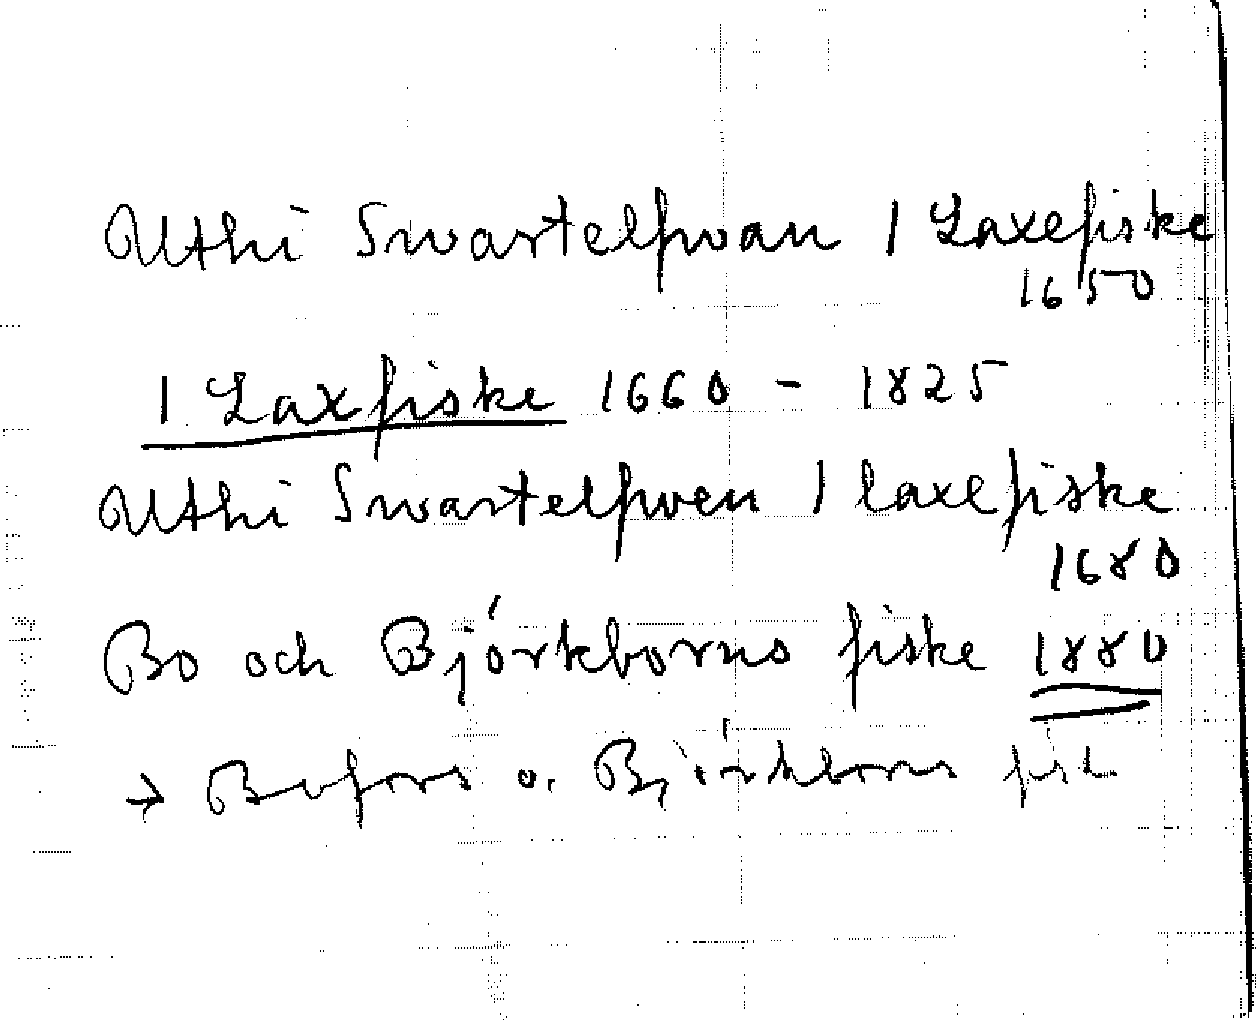 Uthi Swartelfwan 1 Laxefiske
1650
1 Laxfiske 1660 - 1825
Uthi Swartelfwen 1 laxefiske
1680
Bo och Björkborns fiske 1880
→ Bofors o. Björkborns fisk